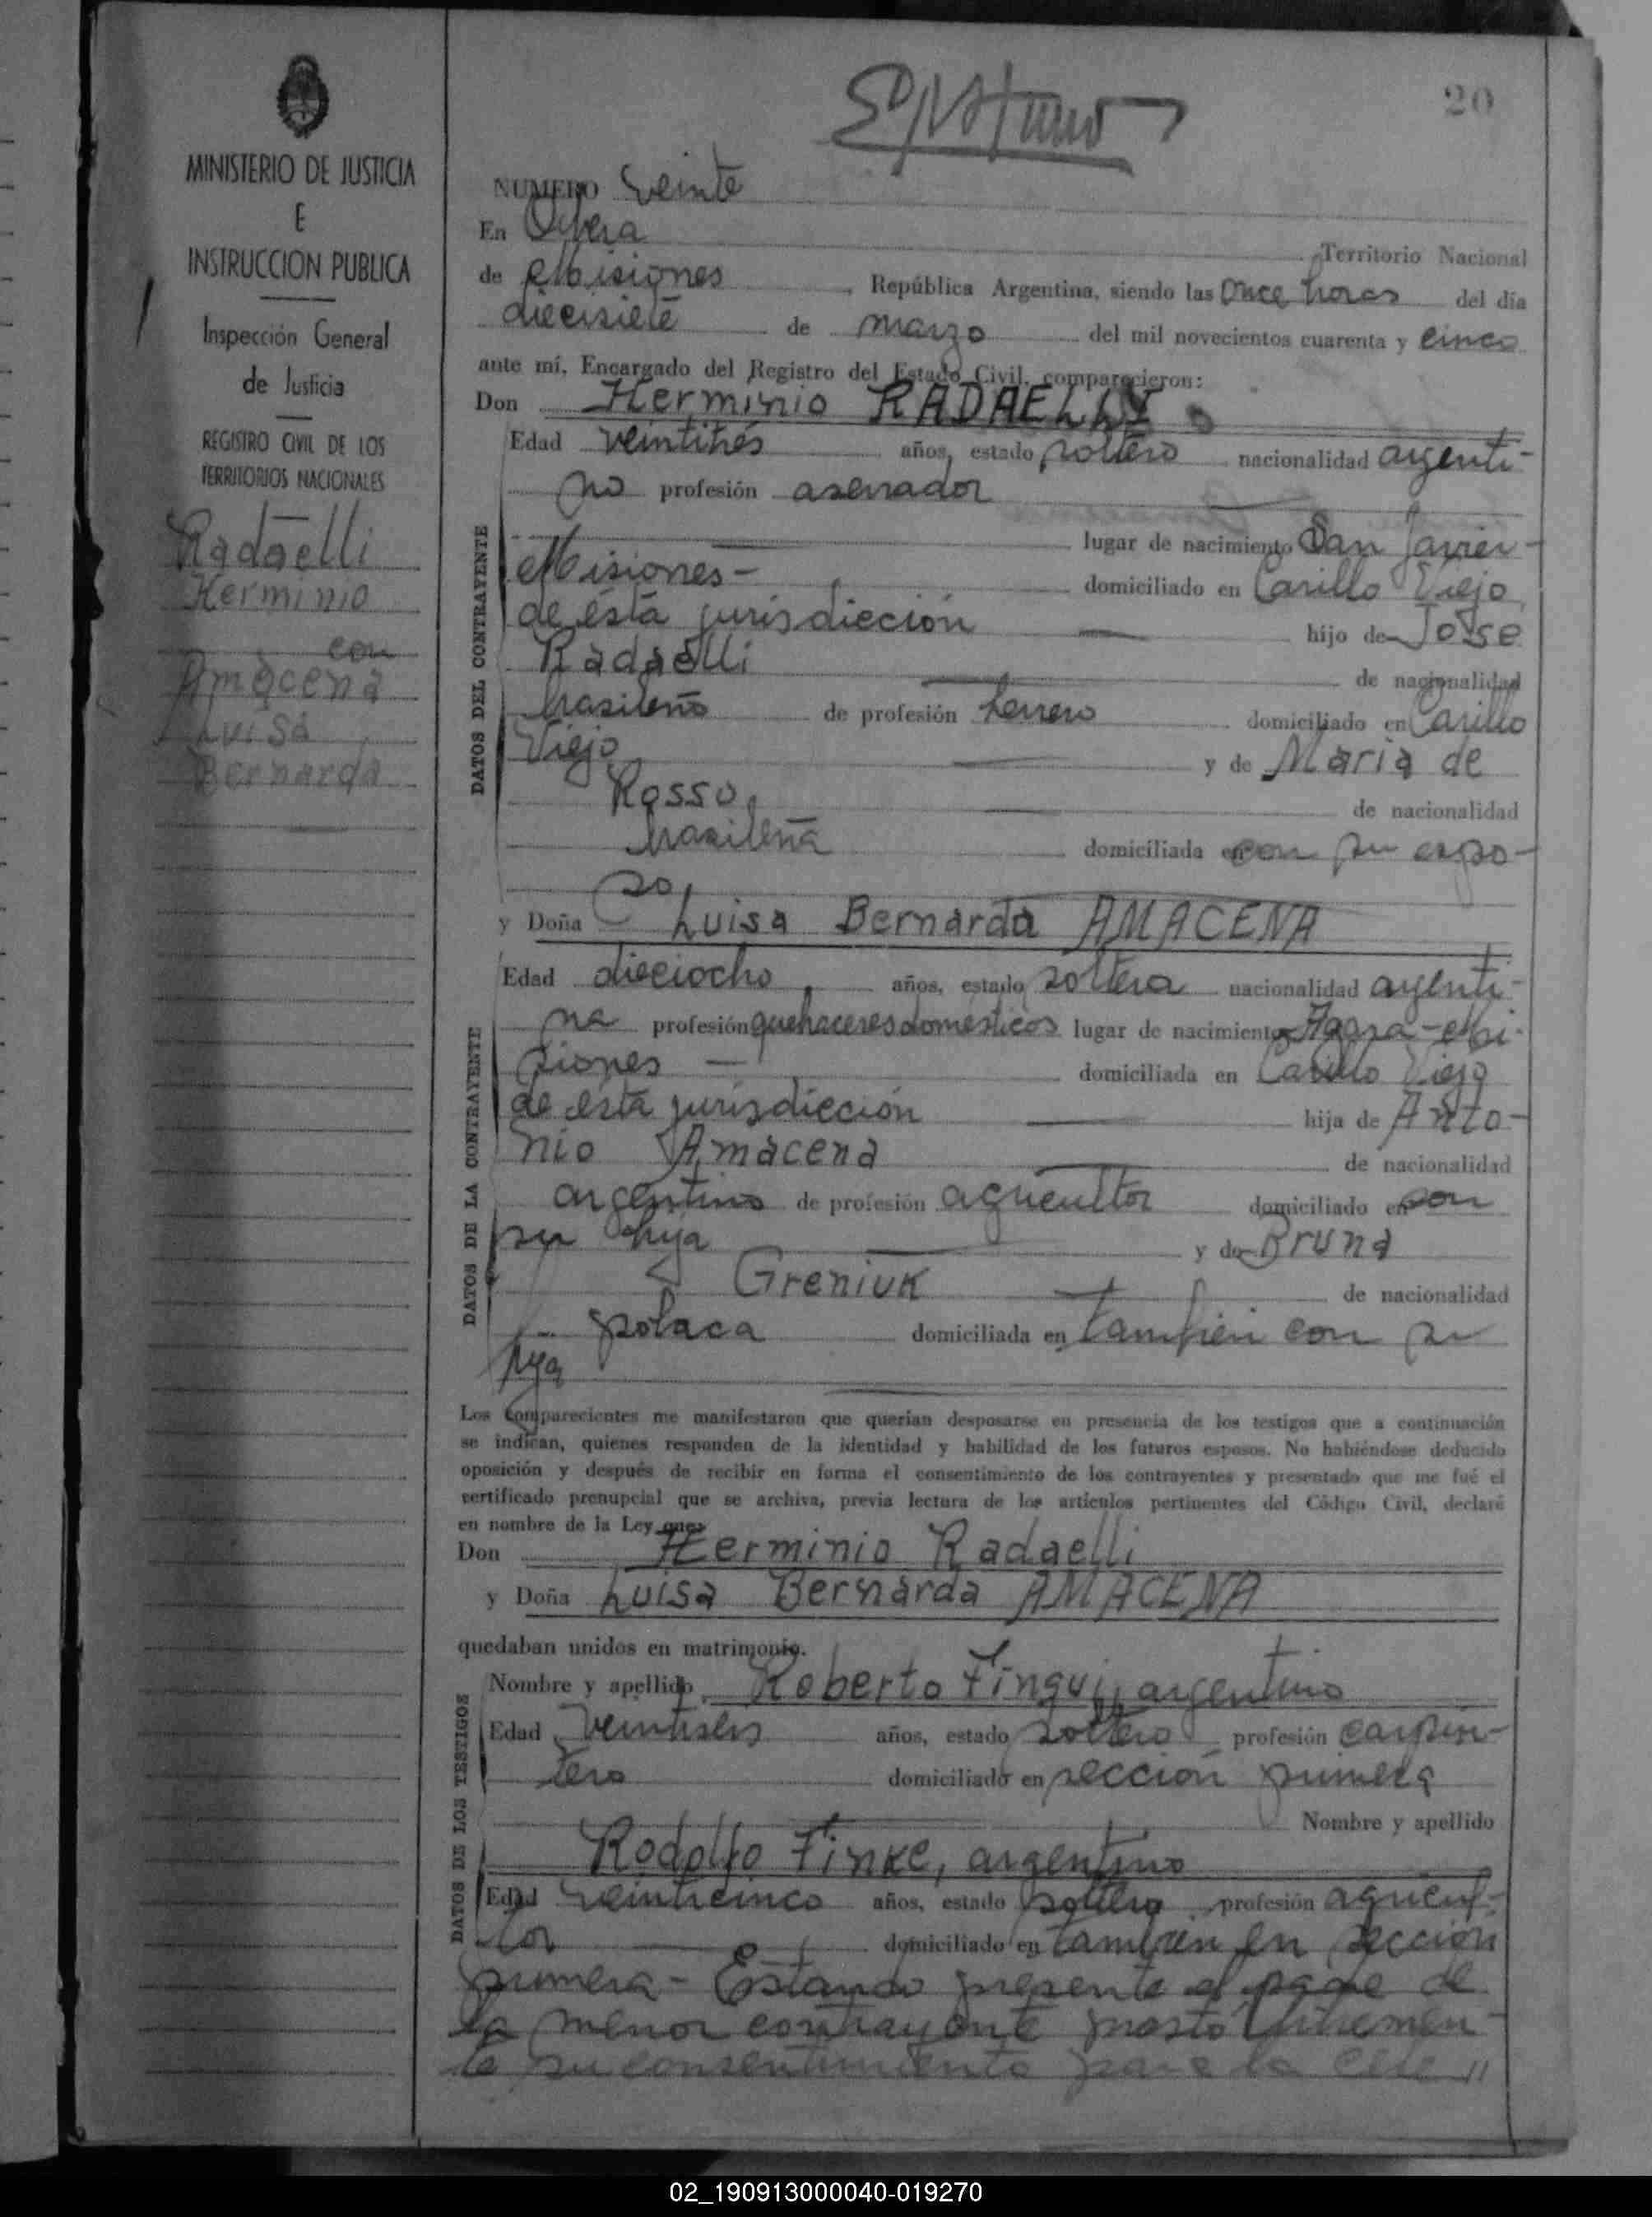 20
MINISTERIO DE JUSTICIA
E
INSTRUCCION PUBLICA
Inspección General
de Justicia
REGISTRO CIVIL DE LOS
TERRITORIOS NACIONALES
Radaelli
Herminio
con
Amacena
Luisa
Bernarda
NUMERO veinte
En Obera Territorio Nacional
de Misiones, República Argentina, siendo las once horas del día
diecisiete de marzo del mil novecientos cuarenta y cinco
ante mí, Encargado del Registro del Estado Civil, comparecieron:
Don Herminio RADAELLI
DATOS DEL CONTRAYENTE
Edad veintitrés años, estado soltero nacionalidad argenti-
no profesión aserrador
lugar de nacimiento San Javier-
Misiones- domiciliado en Carillo Viejo,
de ésta jurisdicción hijo de José
Radaelli de nacionalidad
brasileño de profesión herrero domiciliado en Carillo
Viejo y de Maria de
Rosso, de nacionalidad
brasileña domiciliada en con su espo-
so,
y Doña Luisa Bernarda AMACENA
DATOS DE LA CONTRAYENTE
Edad dieciocho años, estado soltera nacionalidad argenti-
na profesión quehaceres domésticos lugar de nacimiento Azara-Mi-
siones - domiciliada en Carillo Viejo
de ésta jurisdicción hija de Anto-
nio Amacena de nacionalidad
argentino de profesión agricultor domiciliado en con
su hija y de Bruna
Greniuk de nacionalidad
polaca domiciliada en también con su
hija
Los comparecientes me manifestaron que querían desposarse en presencia de los testigos que a continuación
se indican, quienes responden de la identidad y habilidad de los futuros esposos. No habiéndose deducido
oposición y después de recibir en forma el consentimiento de los contrayentes y presentado que me fué el
certificado prenupcial que se archiva, previa lectura de los artículos pertinentes del Código Civil, declaré
en nombre de la Ley que:
Don Herminio Radaelli
y Doña Luisa Bernarda AMACENA
quedaban unidos en matrimonio.
DATOS DE LOS TESTIGOS
Nombre y apellido Roberto argentino
Edad veintiseis años, estado soltero profesión carpin-
tero domiciliado en sección primera
Nombre y apellido
Rodolfo Finke, argentino
Edad veinticinco años, estado soltero profesión agricul-
tor domiciliado en también en sección
primera- Estando presente el padre de
la menor contrayente prestó
te su consentimiento para la cele"
02_190913000040-019270